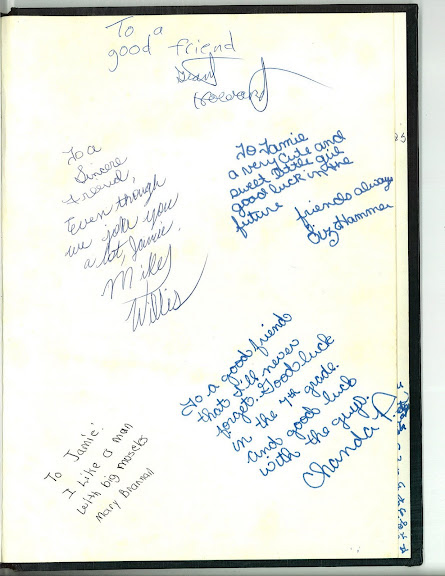 To a
good friend
Howard
To a
Sincere
Friend,
Even though
we joke you
a lot, Jamie.
Mike
Willis
To Jamie
a very cute and
sweet little girl
good luck in the
future
friends always
Liz Hammer
To a good friend
that I'll never
forget. Good luck
in the 7th grade.
and good luck
with the guys.
Chanda P.
To Jamie:
I Like a man
with big mosels
Mary Brannan